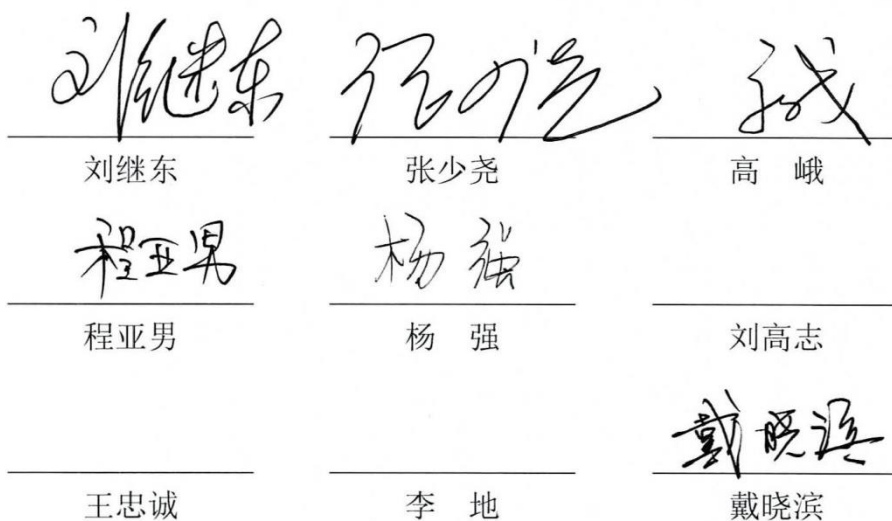 刘继东 张少尧
刘继东 张少尧 高 峨
程亚男 杨强
程亚男 杨 强 刘高志
戴晓滨
王忠诚 李 地 戴晓滨